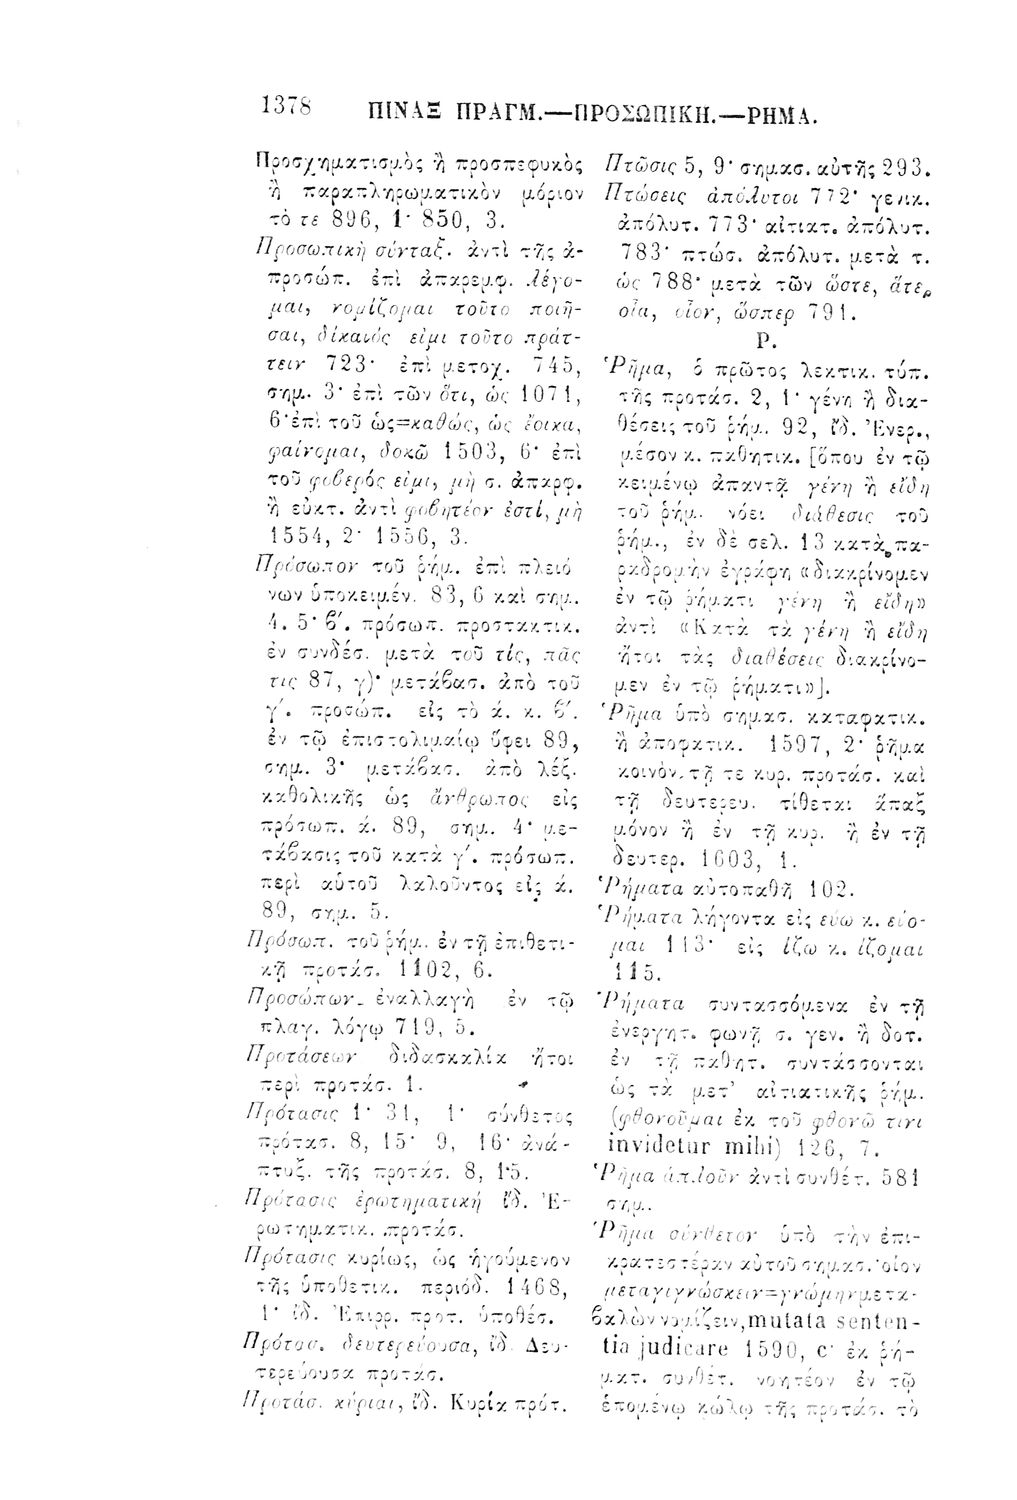 1378 ΠΙΝΑΞ ΠΡΑΓΜ.—ΠΡΟΣΩΠΙΚΗ.—ΡΗΜΑ.
Προσχηματισμὸς ἢ προσπεφυκὸς
ἢ παραπληρωματικὸν μόριον
τὸ τε 896, 1· 850, 3.
Προσωπικὴ σύνταξ. ἀντὶ τῆς ἀ-
προσώπ. ἐπὶ ἀπαρεμφ. λέγο-
μαι, νομίζομαι τοῦτο ποιῆ-
σαι, δίκαιός εἰμι τοῦτο πράτ-
τειν 723· ἐπὶ μετοχ. 745,
σημ. 3· ἐπὶ τῶν ὅτι, ὡς 1071,
6·ἐπὶ τοῦ ὡς=καθώς, ὡς ἔοικα,
φαίνομαι, δοκῶ 1503, 6· ἐπὶ
τοῦ φοβερός εἰμι, μὴ σ. ἀπαρφ.
ἢ εὐκτ. ἀντὶ φοβητέον ἐστί, μὴ
1554, 2· 1556, 3.
Πρόσωπον τοῦ ῥήμ. ἐπὶ πλειό
νων ὑποκειμέν. 83, 6 καὶ σημ.
4. 5· ϐ′. πρόσωπ. προστακτικ.
ἐν συνδέσ. μετὰ τοῦ τίς, πᾶς
τις 87, γ)· μετάϐασ. ἀπὸ τοῦ
γ′. προσώπ. εἰς τὸ ά. κ. ϐ′.
ἐν τῷ ἐπιστολιμαίῳ ὕφει 89,
σημ. 3· μετάϐασ. ἀπὸ λέξ.
καθολικῆς ὡς ἄνθρωπος εἰς
πρόσωπ. ά. 89, σημ. 4· με-
τάϐασις τοῦ κατὰ γ′. πρόσωπ.
περὶ αὑτοῦ λαλοῦντος εἰς ά.
89, σημ. 5.
Πρόσωπ. τοῦ ῥήμ. ἐν τῇ ἐπιθετι-
κῇ προτάσ. 1102, 6.
Προσώπων. ἐναλλαγὴ ἐν τῷ
πλαγ. λόγῳ 719, 5.
Προτάσεων διδασκαλία ἤτοι
περὶ προτάσ. 1.
Πρότασις 1· 31, 1· σύνθετος
πρότασ. 8, 15· 9, 16· ἀνά-
πτυξ. τῆς προτάσ. 8, 15.
Πρότασις ἐρωτηματική ἴδ. Ἐ-
ρωτηματικ. προτάσ.
Πρότασις κυρίως, ὡς ἡγούμενον
τῆς ὑποθετικ. περιόδ. 1468,
1· ἰδ. Ἐπιρρ. προτ. ὑποθέσ.
Πρότασ. δευτερεύουσα, ἴδ. Δευ-
τερεύουσα προτάσ.
Προτάσ. κύριαι, ἴδ. Κυρία πρότ.
Πτῶσις 5, 9· σημασ. αὐτῆς 293.
Πτώσεις ἀπόλυτοι 772· γενικ.
ἀπόλυτ. 773· αἰτιατ. ἀπόλυτ.
783· πτώσ. ἀπόλυτ. μετὰ τ.
ὡς 788· μετὰ τῶν ὥστε, ἅτε,
οἷα, οἷον, ὥσπερ 791.
Ρ.
Ῥῆμα, ὁ πρῶτος λεκτικ. τύπ.
τῆς προτάσ. 2, 1· γένη ἢ δια-
θέσεις τοῦ ῥήμ. 92, ἴδ. Ἐνερ.,
μέσον κ. παθητικ. [ὅπου ἐν τῷ
κειμένῳ ἀπαντᾷ γένη ἢ εἴδη
τοῦ ῥήμ. νόει διάθεσις τοῦ
ῥήμ., ἐν δὲ σελ. 13 κατὰ πα-
ραδρομὴν ἐγράφη «διακρίνομεν
ἐν τῷ ῥήματι γένη ἢ εἴδη»
ἀντὶ «Κατὰ τὰ γένη ἢ εἴδη
ἤτοι τὰς διαθέσεις διακρίνο-
μεν ἐν τῷ ῥήματι»].
Ῥῆμα ὑπὸ σημασ. καταφατικ.
ἢ ἀποφατικ. 1597, 2· ῥῆμα
κοινὸν τῇ τε κυρ. προτάσ. καὶ
τῇ δευτερευ. τίθεται ἅπαξ
μόνον ἢ ἐν τῇ κυρ. ἢ ἐν τῇ
δευτερ. 1603, 1.
Ῥήματα αὐτοπαθῆ 102.
Ῥήματα λήγοντα εἰς ευω κ. εύο-
μαι 113· εἰς ίζω κ. ίζομαι
115.
Ῥήματα συντασσόμενα ἐν τῇ
ἐνεργητ. φωνῇ σ. γεν. ἢ δοτ.
ἐν τῇ παθητ. συντάσσονται
ὡς τὰ μετ’ αἰτιατικῆς ῥήμ.
(φθονοῦμαι ἐκ τοῦ φθονῶ τινι
invidetur mihi) 126, 7.
Ῥῆμα ἁπλοῦν ἀντὶ συνθέτ. 581
σημ.
Ῥῆμα σύνθετον ὑπὸ τὴν ἐπι-
κρατεστέραν αὐτοῦ σημασ. οἷον
μεταγιγνώσκειν=γνώμην μετα-
ϐαλὼν νομίζειν, mutata senten-
tia judicare 1590, c· ἐκ ῥή-
ματ. συνθέτ. νοητέον ἐν τῷ
ἑπομένῳ κώλῳ τῆς προτάσ. τὸ